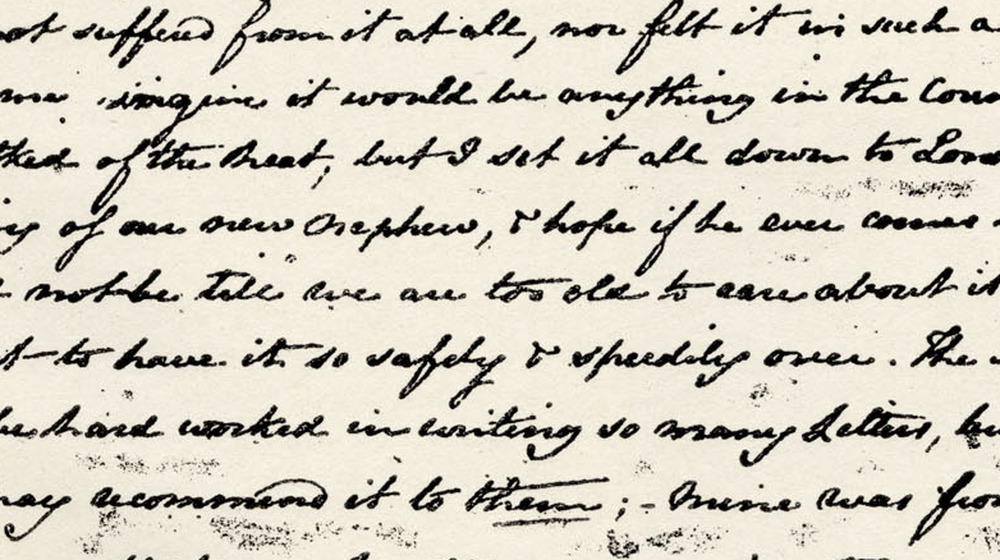 not suffered from it at all, nor felt it in such a
me imagine it would be anything in the Coun
of the heat, but I set it all down to Lond
of our new Nephew, & hope if he ever comes
not be till we are too old to care about it
to have it so safely & speedily over. The
be hard worked in writing so many Letters, bu
may recommend it to them ; - Mine was from